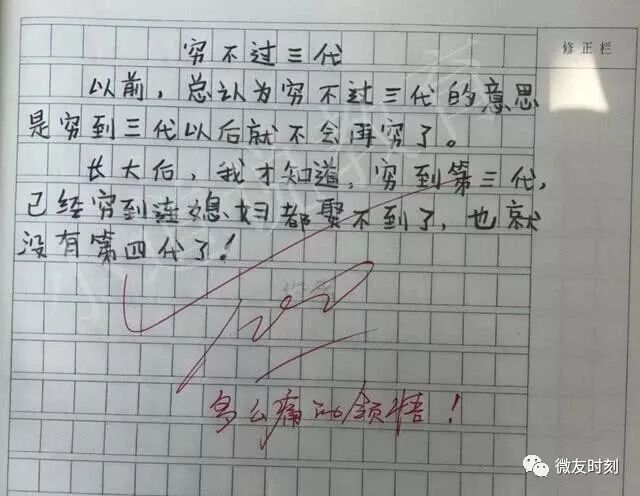 修正栏
穷不过三代
以前，总认为穷不过三代的意思
是穷到三代以后就不会再穷了。
长大后，我才知道，穷到第三代，
已经穷到连媳妇都聚不到了，也就
没有第四代了！
100
多么痛的领悟！
微友时刻